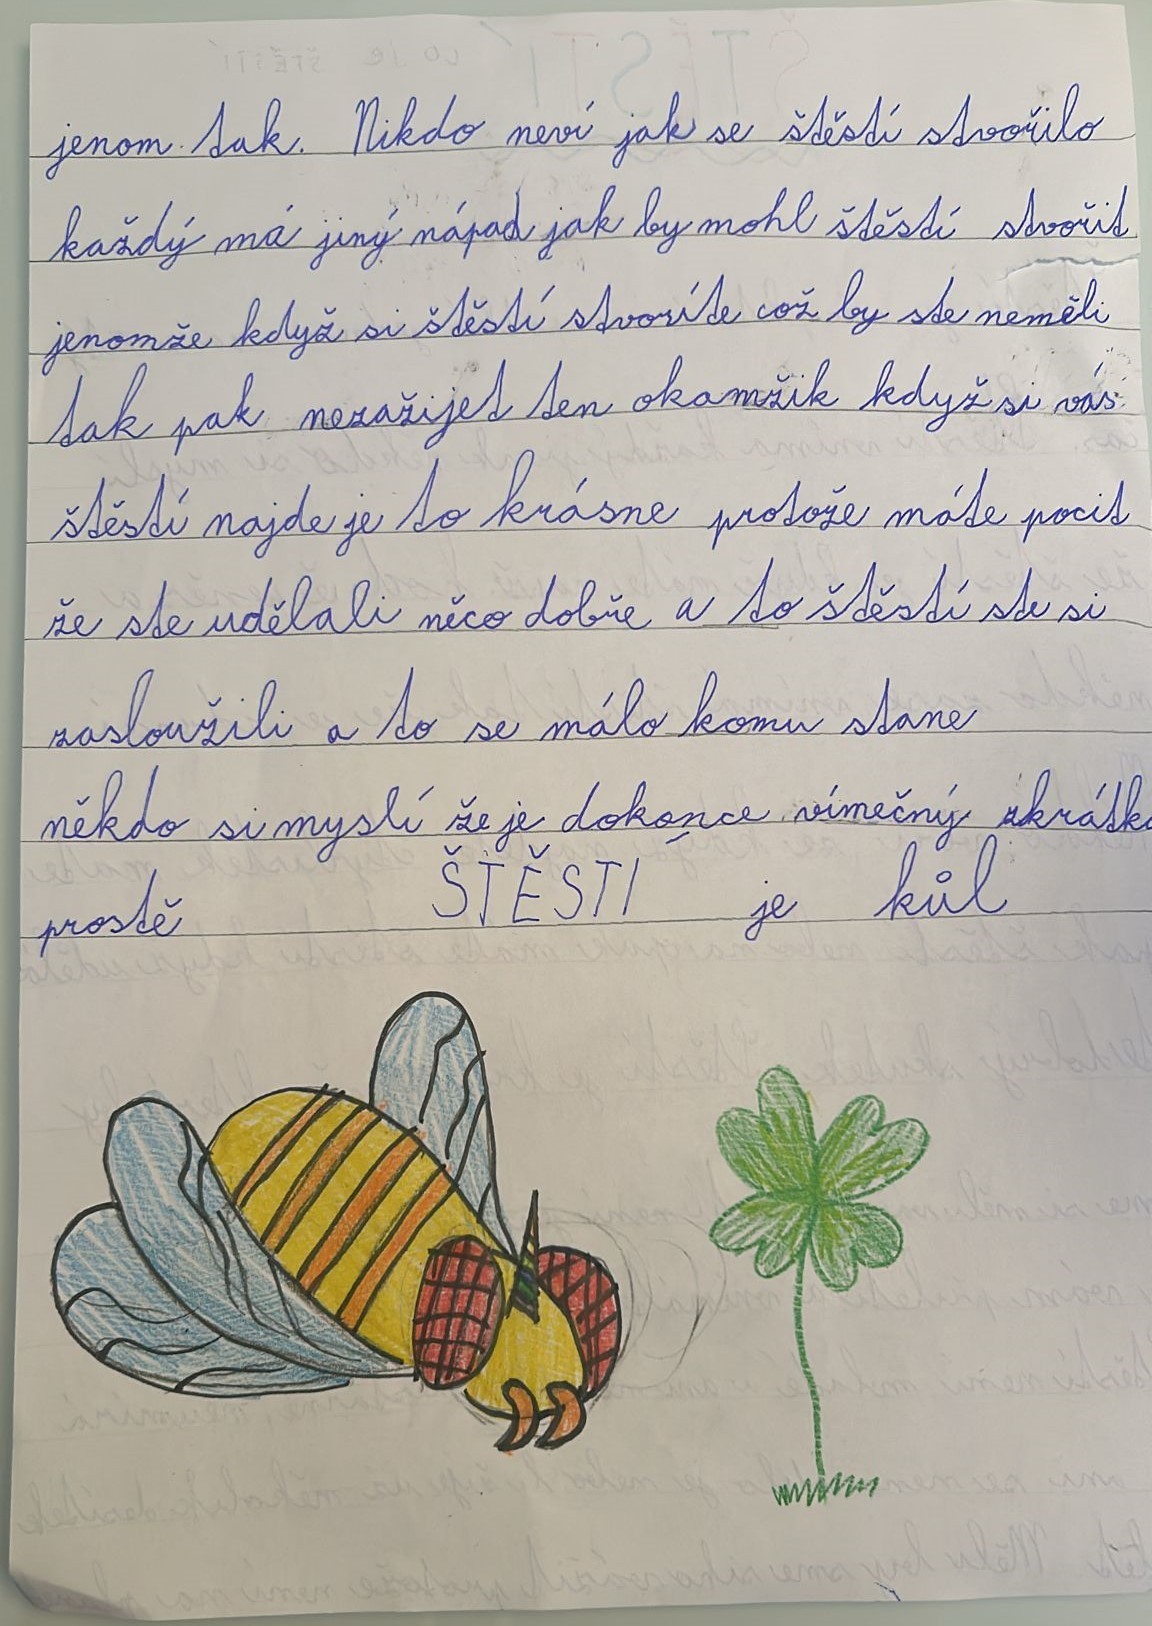 jenom tak. Nikdo neví jak se štěstí stvořilo
každý má jiný nápad jak by mohl štěstí stvořit
jenomže když si štěstí stvoríte což by ste neměli
tak pak nezažijet ten okamžik když si vás
štěstí najde je to krásne protože máte pocit
že ste udělali něco dobře a to štěstí ste si
zasloužili a to se málo komu stane
někdo si myslí že je dokonce vímečný zkrátka
prostě ŠTĚSTÍ je kůl